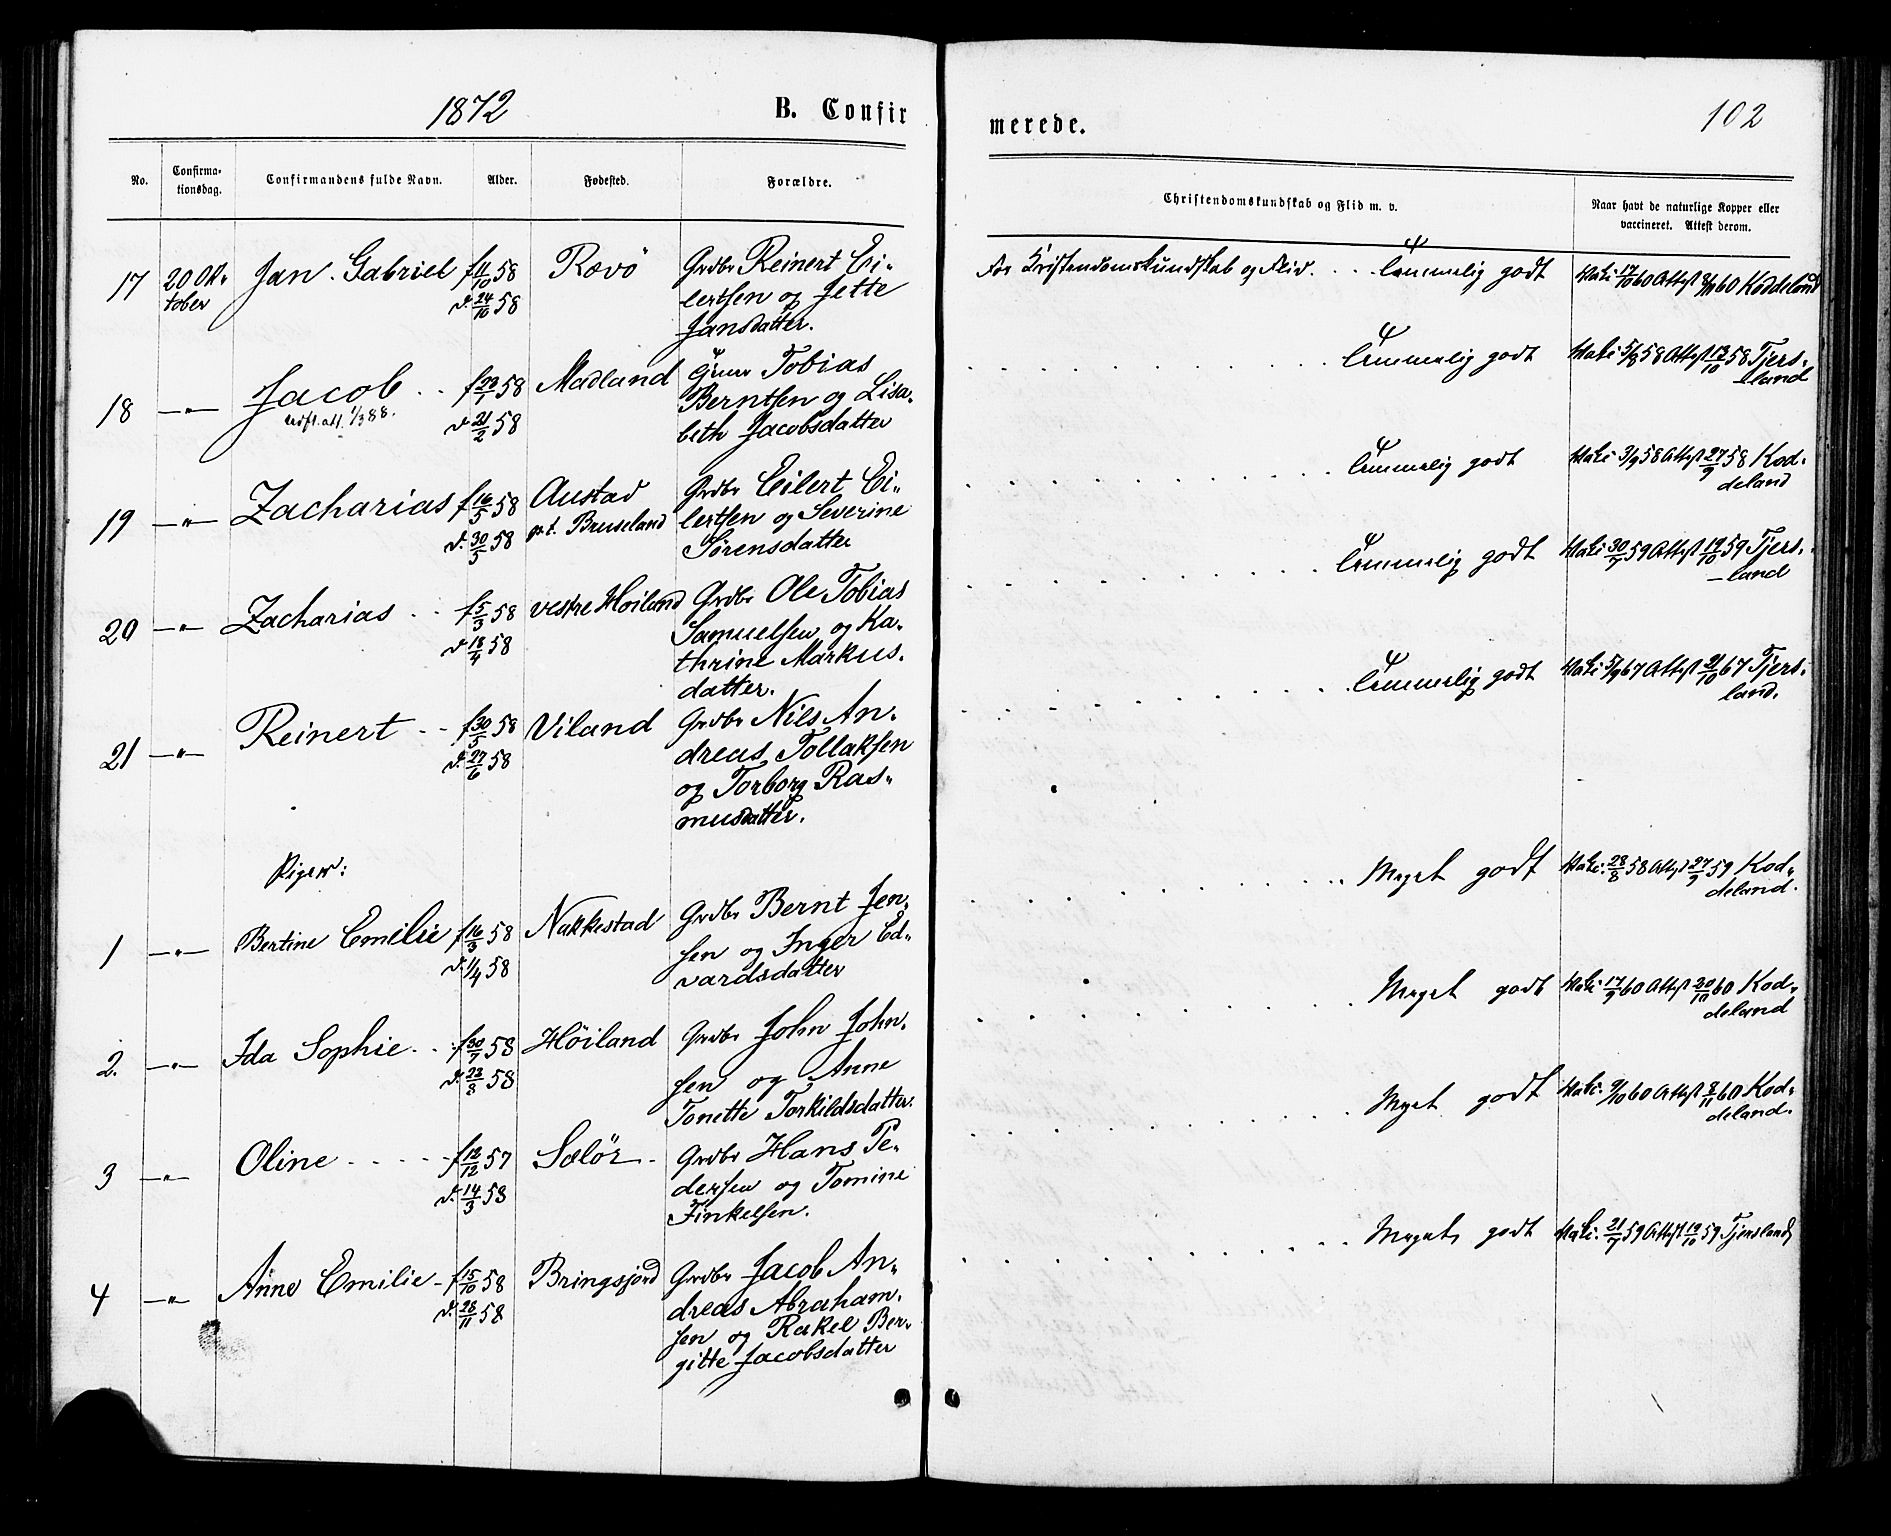 1872 B. Confir
merede. 102
No. Confirma-
tionsdag. Confirmandens fulde Navn. Alder. Fødested. Forældre.
Christendomskundskab og Flid m. v. Naar havt de naturlige Kopper eller
vaccineret. Attest derom.
17 20 Ok- Jan Gabriel f. 11/10 58 Rævø Grdbr Reinert Ei-
tober d. 24/10 58 lertsen og Jette
Jansdatter.
For Kristendomskundskab og Flid. . . temmelig godt Vaki 17/10 60 Attest 8/11 60 Koddeland
18 —"— Jacob . . f 22/1 58 Madland Tobias
udst. att. 1/3 88. d 21/2 58 Berntsen og Lisa-
beth Jacobsdatter
temmelig godt Vaki 5/8 58 Attest 12/10 58 Tjers-
land
19 —"— Zacharias f 16/5 58 Austad Grdbr Eilert Ei-
d. 30/5 58 pt. Bruseland lertsen og Severine
Sørensdatter
temmelig godt Vaki 3/9 58 Attest 27/9 58 Kod-
deland
20 —"— Zacharias . . f 5/3 58 vestre Høiland Grdbr Ole Tobias
d 18/4 58 Samuelsen og Ka-
thrine Markus-
datter.
temmelig godt Vaki 30/9 59 Attest 19/10 59 Tjers-
land
21 —"— Reinert . . f 30/5 58 Viland Grdbr Nils An-
d. 27/6 58 dreas Tollaksen
og Torborg Ras-
musdatter.
temmelig godt Vaki 5/9 67 Attest 21/10 67 Tjers-
land.
Piger:
1 —"— Bertine Emilie f 16/3 58 Nakkestad Grdbr Bernt Jen-
d. 1/4 58 sen og Inger Ed-
vardsdatter
Meget godt Vaki. 28/8 58 Attest 27/9 59 Kod-
deland.
2. —"— Ida Sophie . . f 30/7 58 Høiland Grdbr John John-
d. 23/8 58 sen og Anne
Tonette Torkildsdatter.
Meget godt Vaki. 17/9 60 Attest 20/10 60 Kod-
deland
3 —"— Oline . . . . . f 12/12 57 Sælør Grdbr Hans Pe-
d. 14/3 58 dersen og Tomine
Finkelsen.
Meget godt Vaki. 9/10 60 Attest 8/11 60 Kod-
deland.
4 —"— Anne Emilie - f 15/10 58 Bringsjord Grdbr Jacob An-
d. 28/11 58 dreas Abraham-
sen og Rakel Ber-
gitte Jacobsdatter
Meget godt Vaki. 21/9 59 Attest 19/10 59 Tjersland